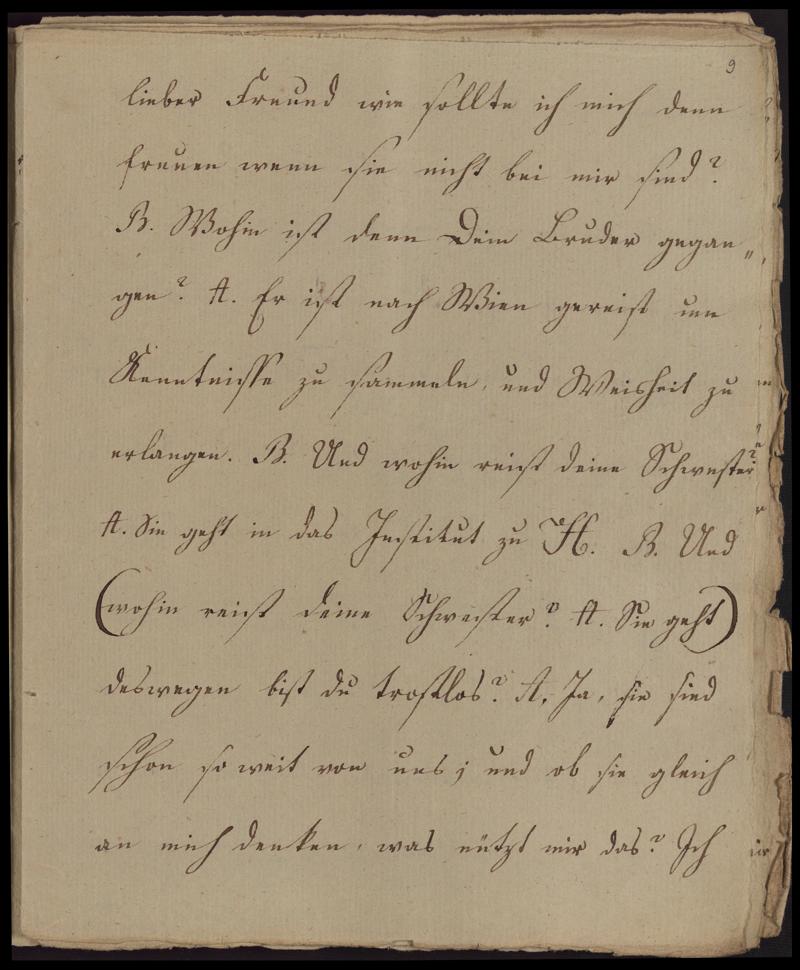 9
lieber Freund wie sollte ich mich denn
freuen wenn sie nicht bei mir sind?
B. Wohin ist denn Dein Bruder gegan„
gen? A. Er ist nach Wien gereist um
Kenntnisse zu sammeln, und Weisheit zu
erlangen. B. Und wohin reist deine Schwester?
A. Sie geht in das Institut zu H. B. Und
(wohin reist deine Schwester? A. Sie geht)
deswegen bist du trostlos? A. Ja, sie sind
schon so weit von uns; und ob sie gleich
an mich denken, was nützt mir das? Ich